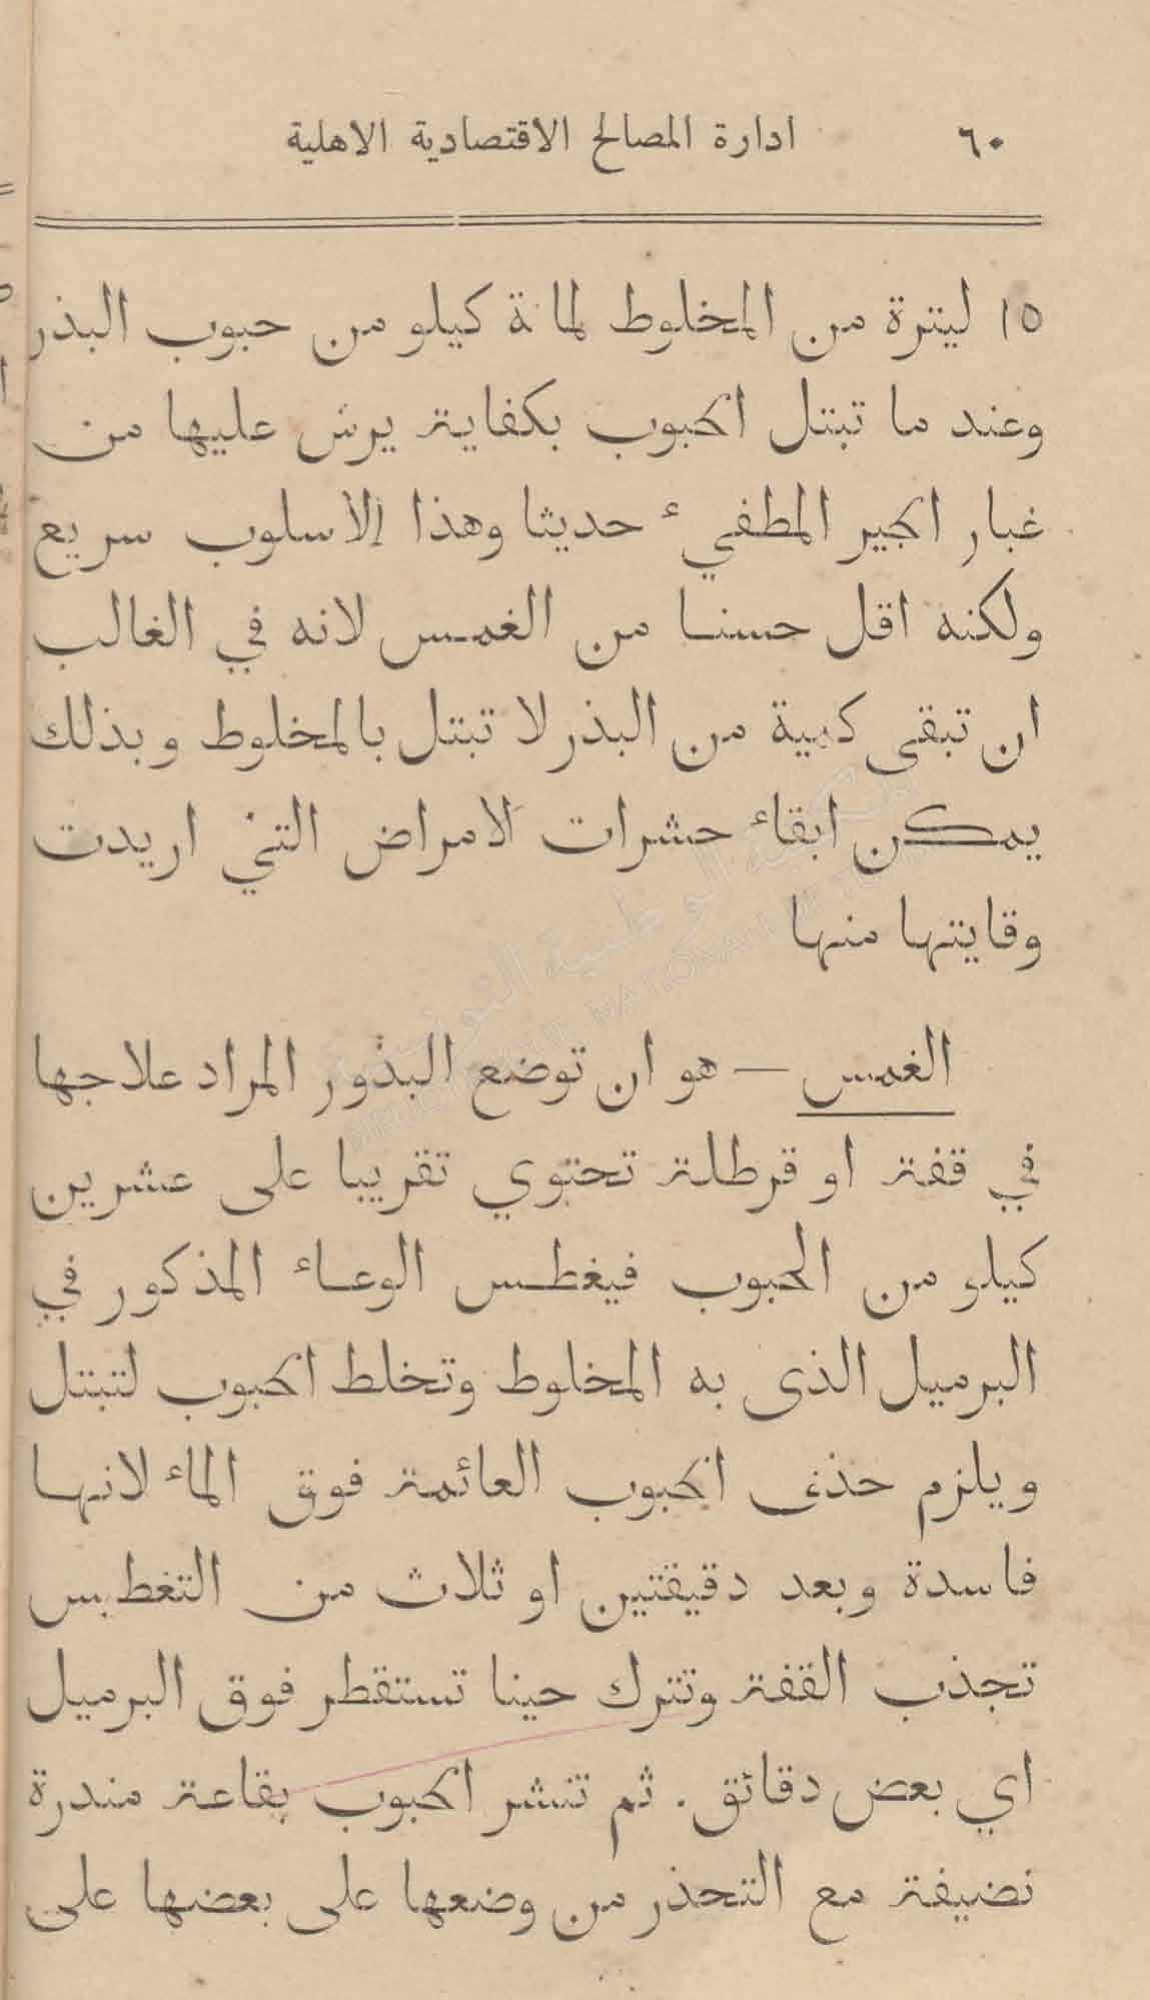 ٦٠ ادارة المصالح الاقتصادية الاهلية
١٥ ليترة من المخلوط لمائة كيلو من حبوب البذر
وعند ما تبتل الحبوب بكفاية يرش عليها من
غبار الجير المطفيء حديثا وهذا الاسلوب سريع
ولكنه اقل حسنا من الغمس لانه في الغالب
ان تبقى كمية من البذر لا تبتل بالمخلوط وبذلك
يمكن ابقاء حشرات الامراض التي اريدت
وقايتها منها
الغمس — هو ان توضع البذور المراد علاجها
في قفة او قرطلة تحتوي تقريبا على عشرين
كيلو من الحبوب فيغطس الوعاء المذكور في
البرميل الذى به المخلوط وتخلط الحبوب لتبتل
ويلزم حذف الحبوب العائمة فوق الماء لانها
فاسدة وبعد دقيقتين او ثلاث من التغطيس
تجذب القفة وتترك حينا تستقطر فوق البرميل
اي بعض دقائق. ثم تنشر الحبوب بقاعة مندرة
نضيفة مع التحذر من وضعها على بعضها على